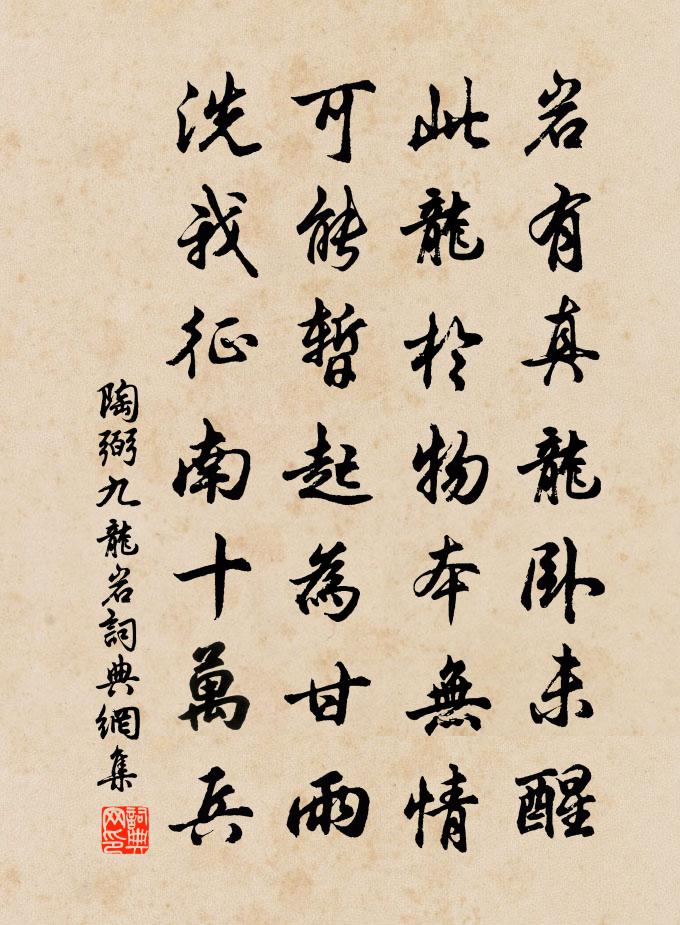 岩有真龍卧未醒
此龍於物本無情
可能暫起為甘雨
洗我征南十萬兵
陶弼九龍岩詞典網集
詞典網印